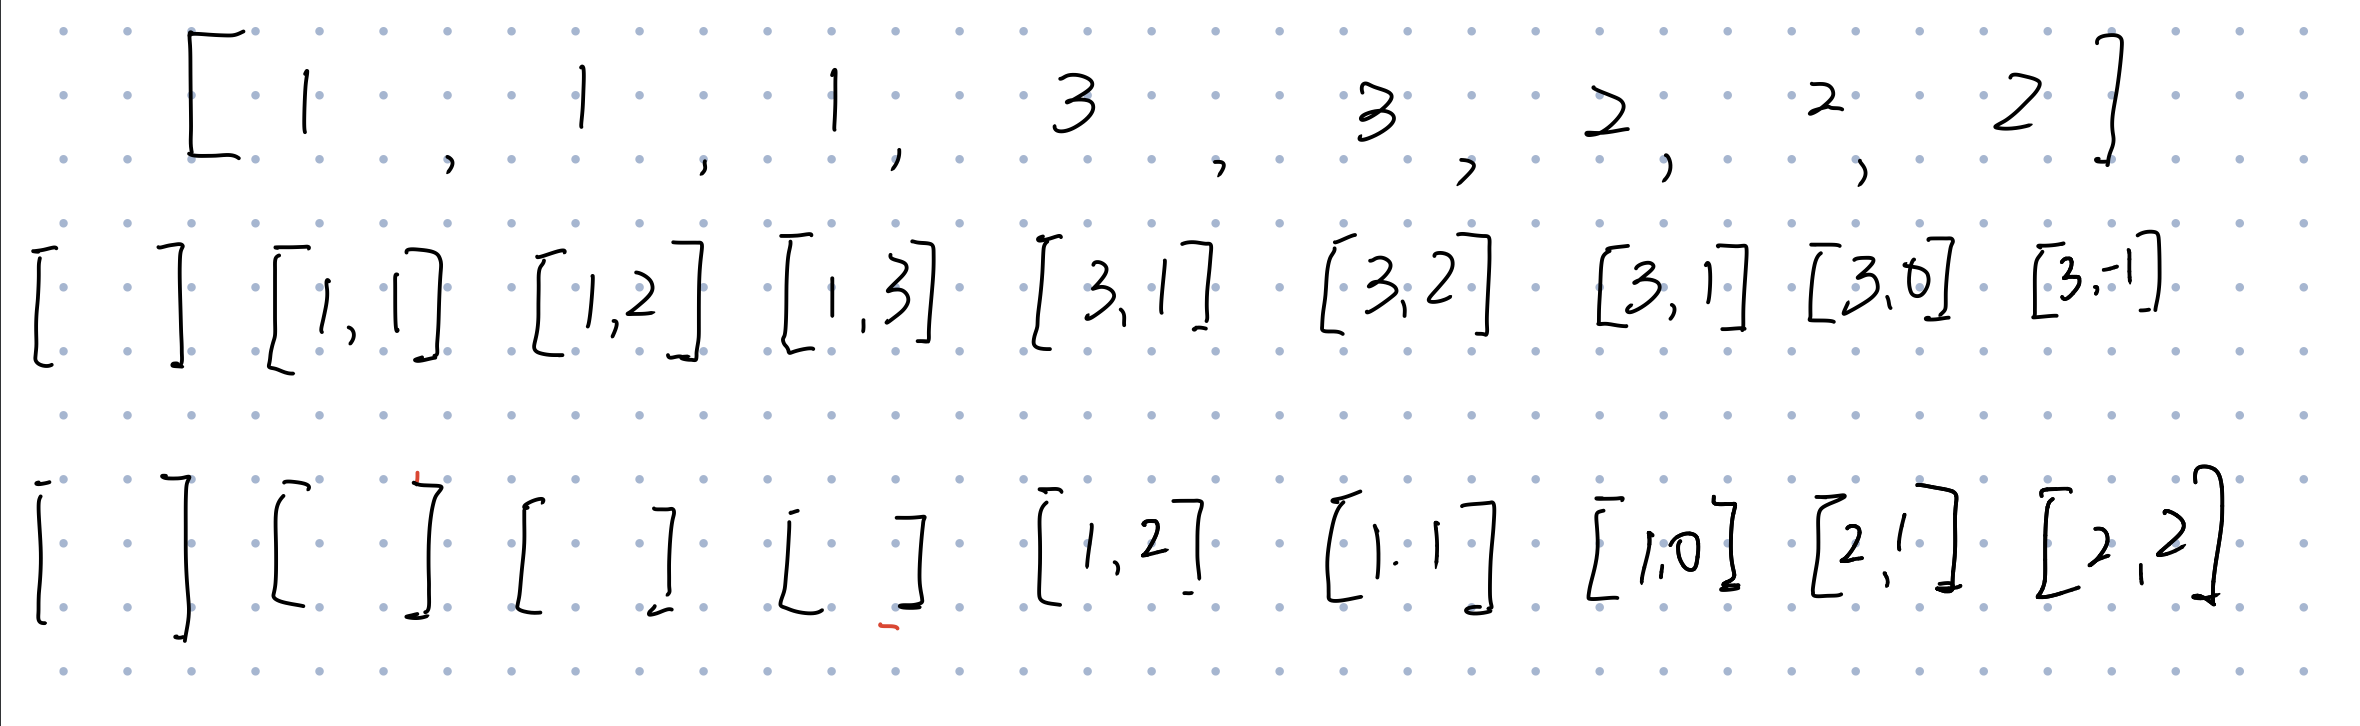 [ 1 , 1 , 1 , 3 , 3 , 2 , 2 , 2 ]
[ ] [1, 1] [1,2] [1,3] [3,1] [3,2] [3,1] [3,0] [3,-1]
[ ] [ ] [ ] [ ] [1,2] [1.1] [1,0] [2,1] [2,2]